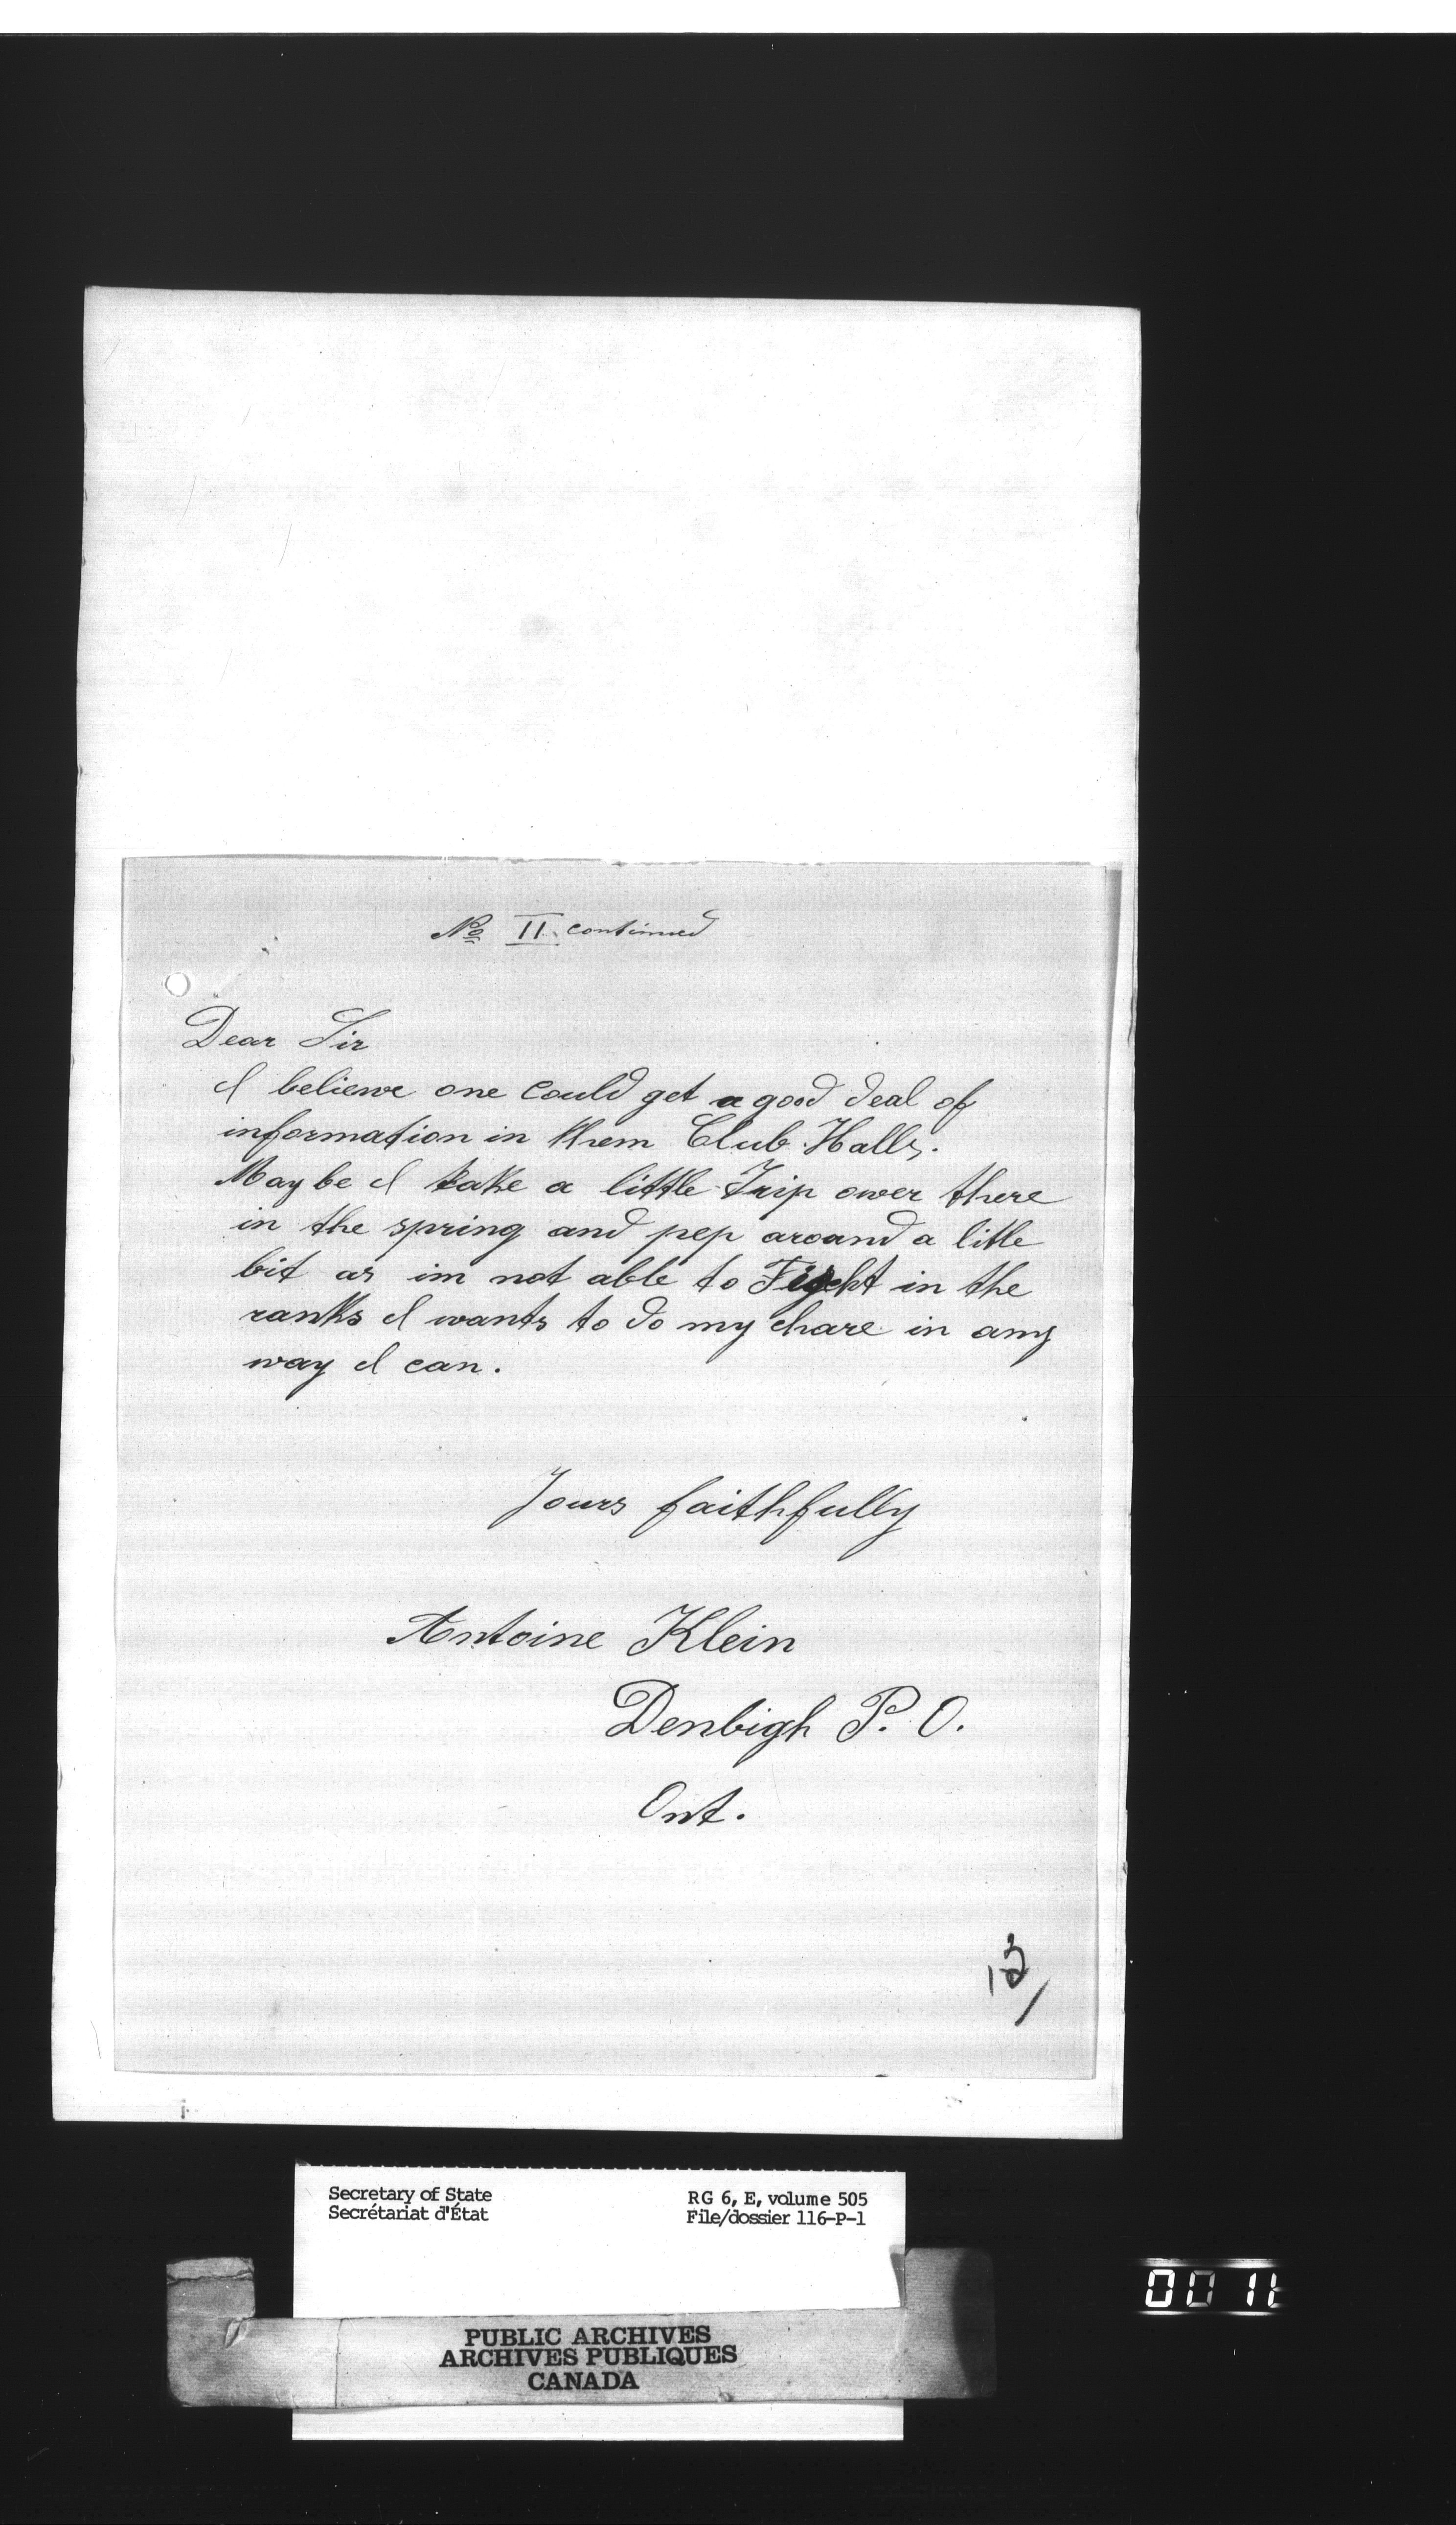 No II continued
Dear Sir
I beliewe one could get a good deal of
information in them Club Halls.
May be I take a little Trip ower there
in the spring and pep around a litle
bit as im not able to Fight in the
ranks I wants to do my chare in any
way I can.
Yours faithfully
Antoine Klein
Denbigh P. O.
Ont.
Secretary of State
Secrétariat d'État
RG 6, E, volume 505
File/dossier 116-P-1
PUBLIC ARCHIVES
ARCHIVES PUBLIQUES
CANADA